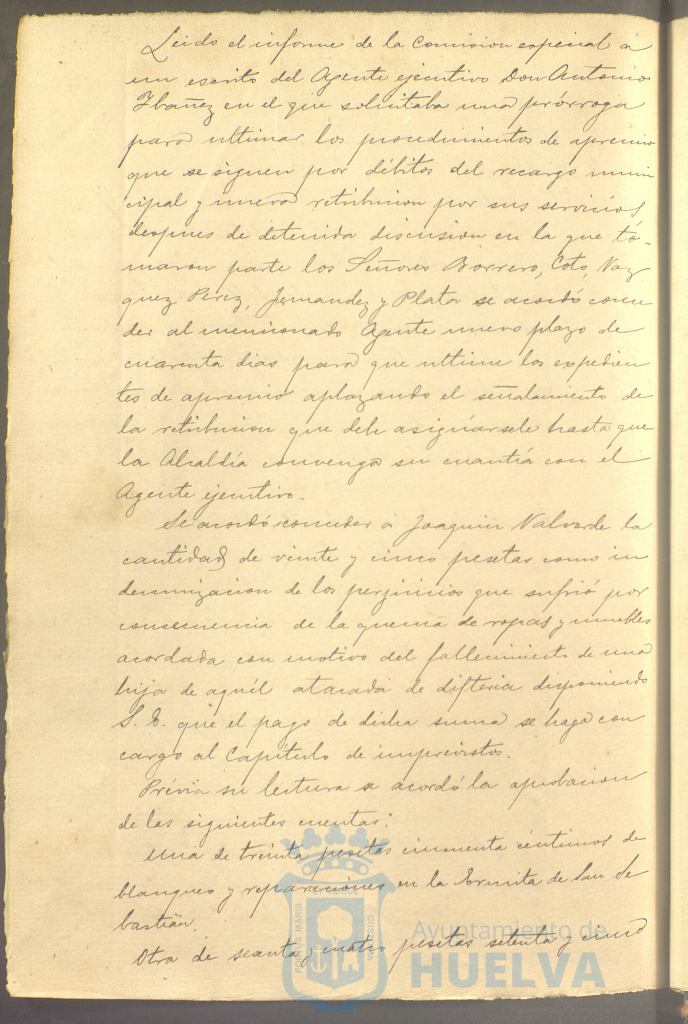 Leido el informe de la Comision especial á
un escrito del Agente ejecutivo Don Antonio
Ybañez en el que solicitaba una prórroga
para ultimar los procedimientos de apremio
que se siguen por débitos del recargo muni
cipal y nueva retribucion por sus servicios
despues de detenida discusion en la que to-
maron parte los Señores Borrero, Coto, Vaz
quez Perez, Fernandez y Plata se acordó conce
der al mencionado Agente nuevo plazo de
cuarenta dias para que ultime los expedien
tes de apremio aplazando el señalamiento de
la retribucion que debe asignársele hasta que
la Alcaldía convenga su cuantía con el
Agente ejecutivo.
Se acordó conceder á Joaquin Valverde la
cantidad de veinte y cinco pesetas como in
demnizacion de los perjuicios que sufrió por
consecuencia de la quema de ropas y muebles
acordada con motivo del fallecimiento de una
hija de aquél atacada de difteria disponiendo
S. E. que el pago de dicha suma se haga con
cargo al Capítulo de imprevistos.
Prévia su lectura se acordó la aprobacion
de las siguientes cuentas:
Una de treinta pesetas cincuenta céntimos de
blanqueo y reparaciones en la Ermita de San Se
bastian.
Otra de sesenta y cuatro pesetas setenta y cinco
PORTUS MARIS
CUSTODIA
Ayuntamiento de
HUELVA